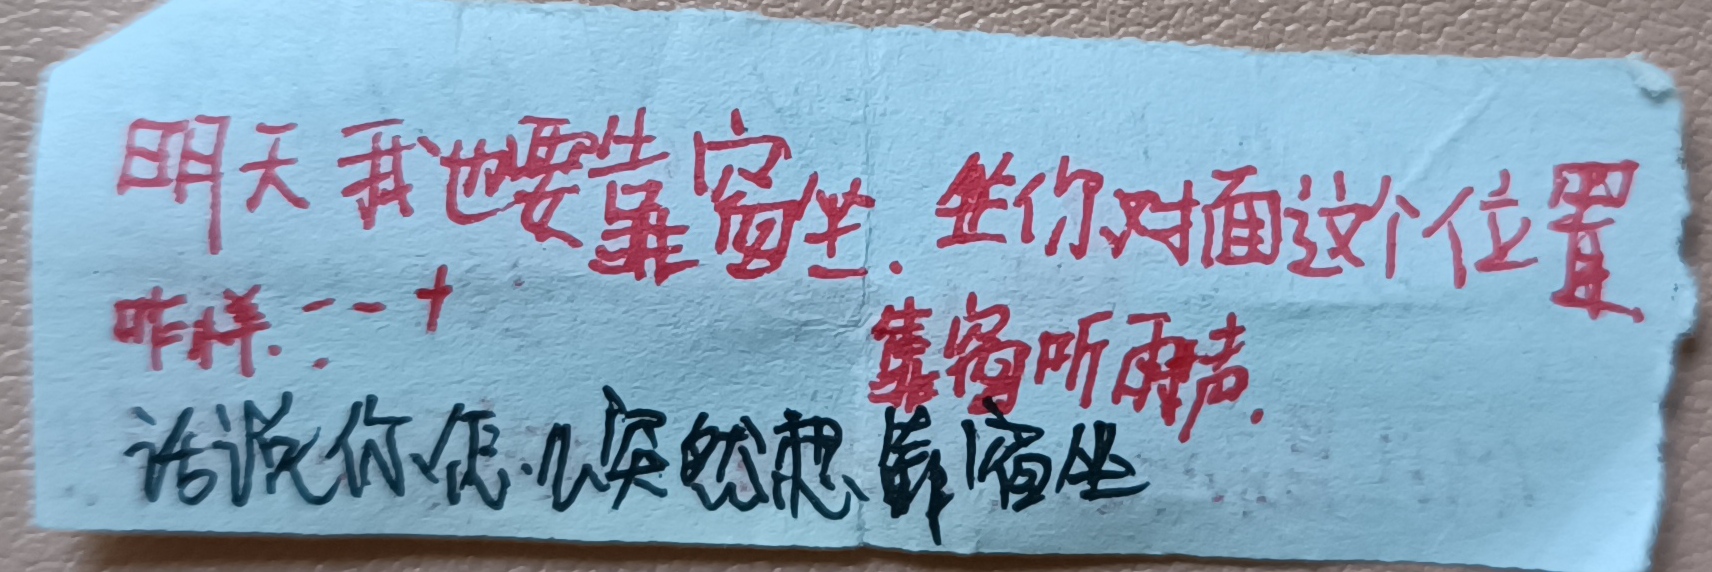 明天我也要靠窗坐.坐你对面这个位置
咋样.
靠窗听雨声.
话说你怎么突然想靠窗坐